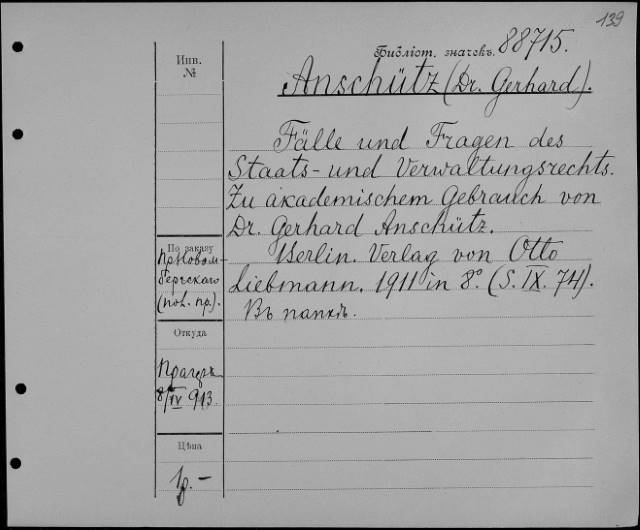 139
Библіот. значекъ. 88715.
Инв.
№
Anschütz (Dr. Gerhard).
Fälle und Fragen des
Staats- und Verwaltungsrechts.
Zu akademischem Gebrauch von
Dr. Gerhard Anschütz.
Berlin. Verlag von Otto
Liebmann. 1911 in 8° (S. IX. 74).
Въ папкѣ.
По заказу
пр.
(пол. пр.).
Откуда
8/IV 913.
Цѣна
1 р. –